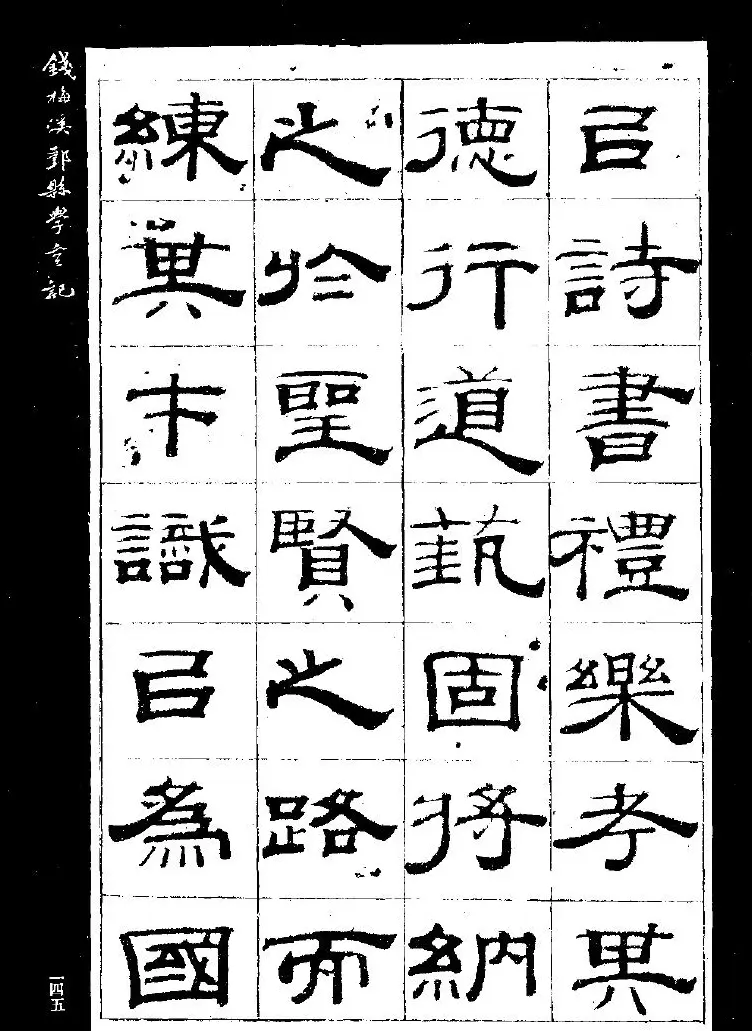 㠯詩書禮樂考其
德行道藝固將納
之於聖賢之路而
練其才識㠯為國
錢梅溪鄞縣學記
一四五